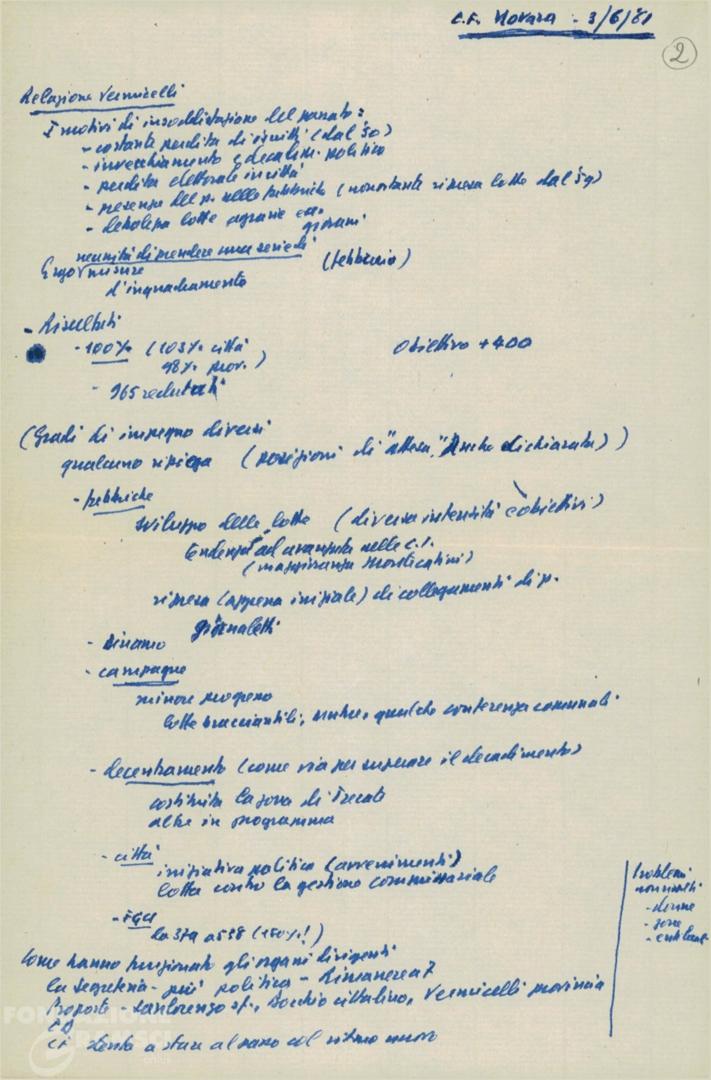 C.F. Novara - 3/6/61
2
Relazione Vermicelli
I motivi di insoddisfazione del passato:
- costante perdita di iscritti (dal '50)
- invecchiamento e decadim. politico
- perdita elettorale in città
- presenza del p. nelle fabbriche (nonostante ripresa lotte dal '59)
- debolezza lotte agrarie
giovani
necessità di prendere una serie di
Ergo misure (febbraio)
d'inquadramento
- Risultati
- 100% (103% città Obiettivo +400
98% prov.)
- 965 reclutati
(Gradi di impegno diversi
qualcuno ripiega (posizioni di "attesa" anche dichiarata))
- fabbriche
sviluppo delle lotte (diversa intensità e obiettivi)
tendenza ad avanzata nelle C.I.
(maggioranza Montecatini)
ripresa (appena iniziale) di collegamenti di p.
giornaletti
- campagne
minore progresso
lotte bracciantili, mutue, qualche conferenza comunale
- decentramento (come via per superare il decadimento)
costituita la zona di Trecate
altre in programma
- città
iniziativa politica (avvenimenti)
lotta contro la gestione commissariale
- FGCI
da 379 a 558 (150%!)
Problemi
non risolti
- donne
- zone
Come hanno funzionato gli organi dirigenti
la segreteria - più politica - Rimanere a 7
Proposte - Sanlorenzo sf., Bocchio cittadino, Vermicelli provincia
CD
CF stenta a stare al passo col ritmo nuovo
FONDAZIONE
GRAMSCI